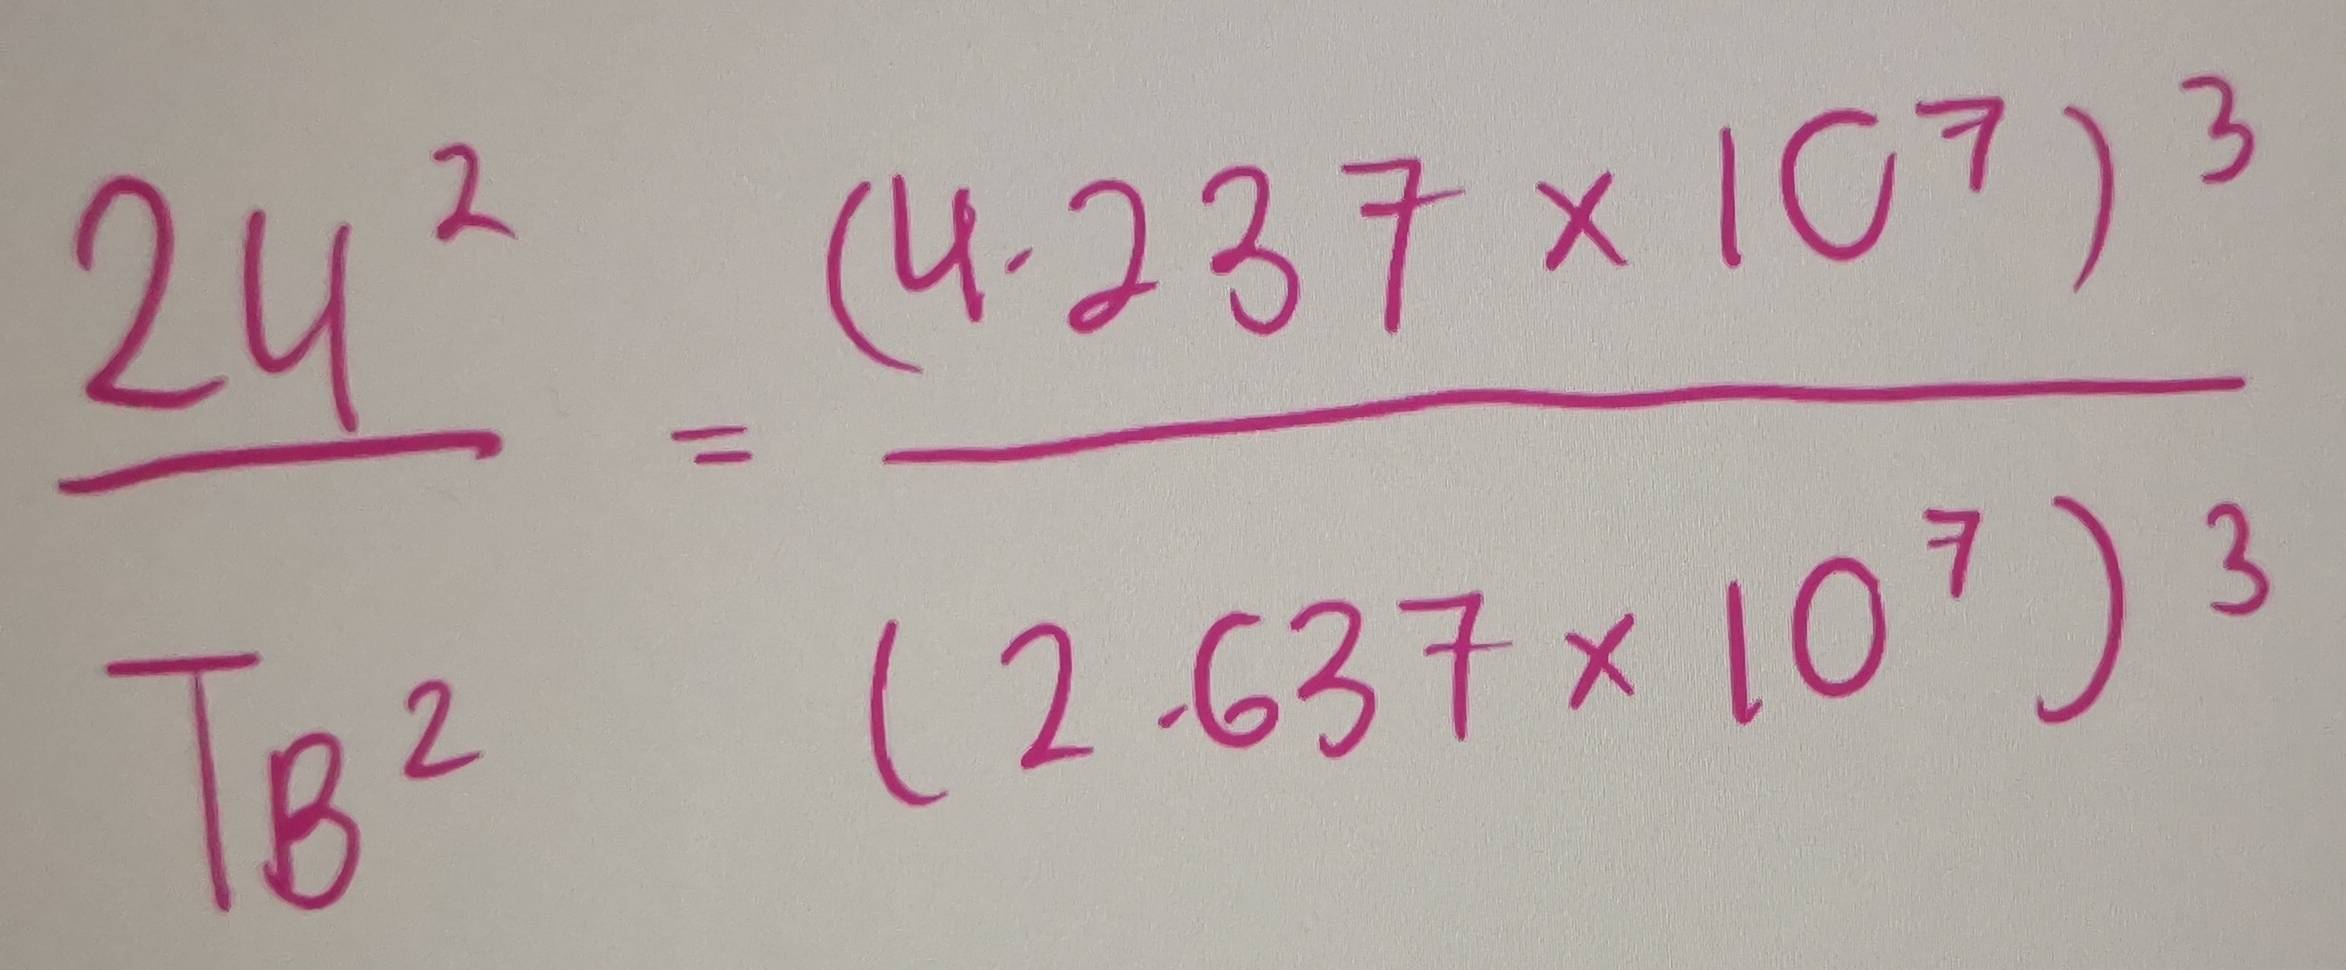 24² / T_B² = (4.237 × 10⁷)³ / (2.637 × 10⁷)³